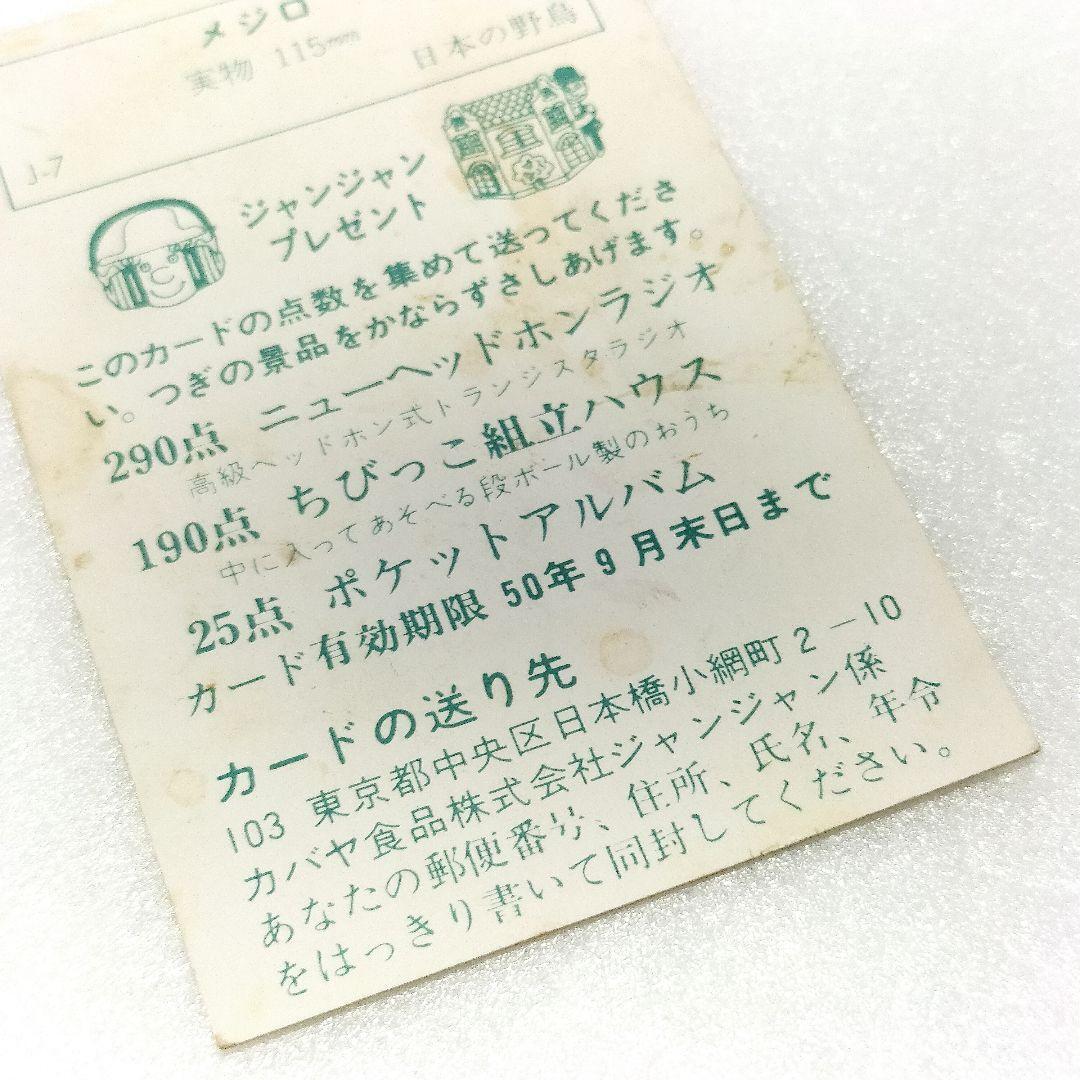 メジロ
実物 115mm
日本の野鳥
J-7
ジャンジャン
プレゼント
このカードの点数を集めて送ってくださ
い。つぎの景品をかならずさしあげます。
290点 ニューヘッドホンラジオ
高級ヘッドホン式トランジスタラジオ
190点 ちびっこ組立ハウス
中に入ってあそべる段ボール製のおうち
25点 ポケットアルバム
カード有効期限 50年9月末日まで
カードの送り先
103 東京都中央区日本橋小網町2-10
カバヤ食品株式会社ジャンジャン係
あなたの郵便番号、住所、氏名、年令
をはっきり書いて同封してください。